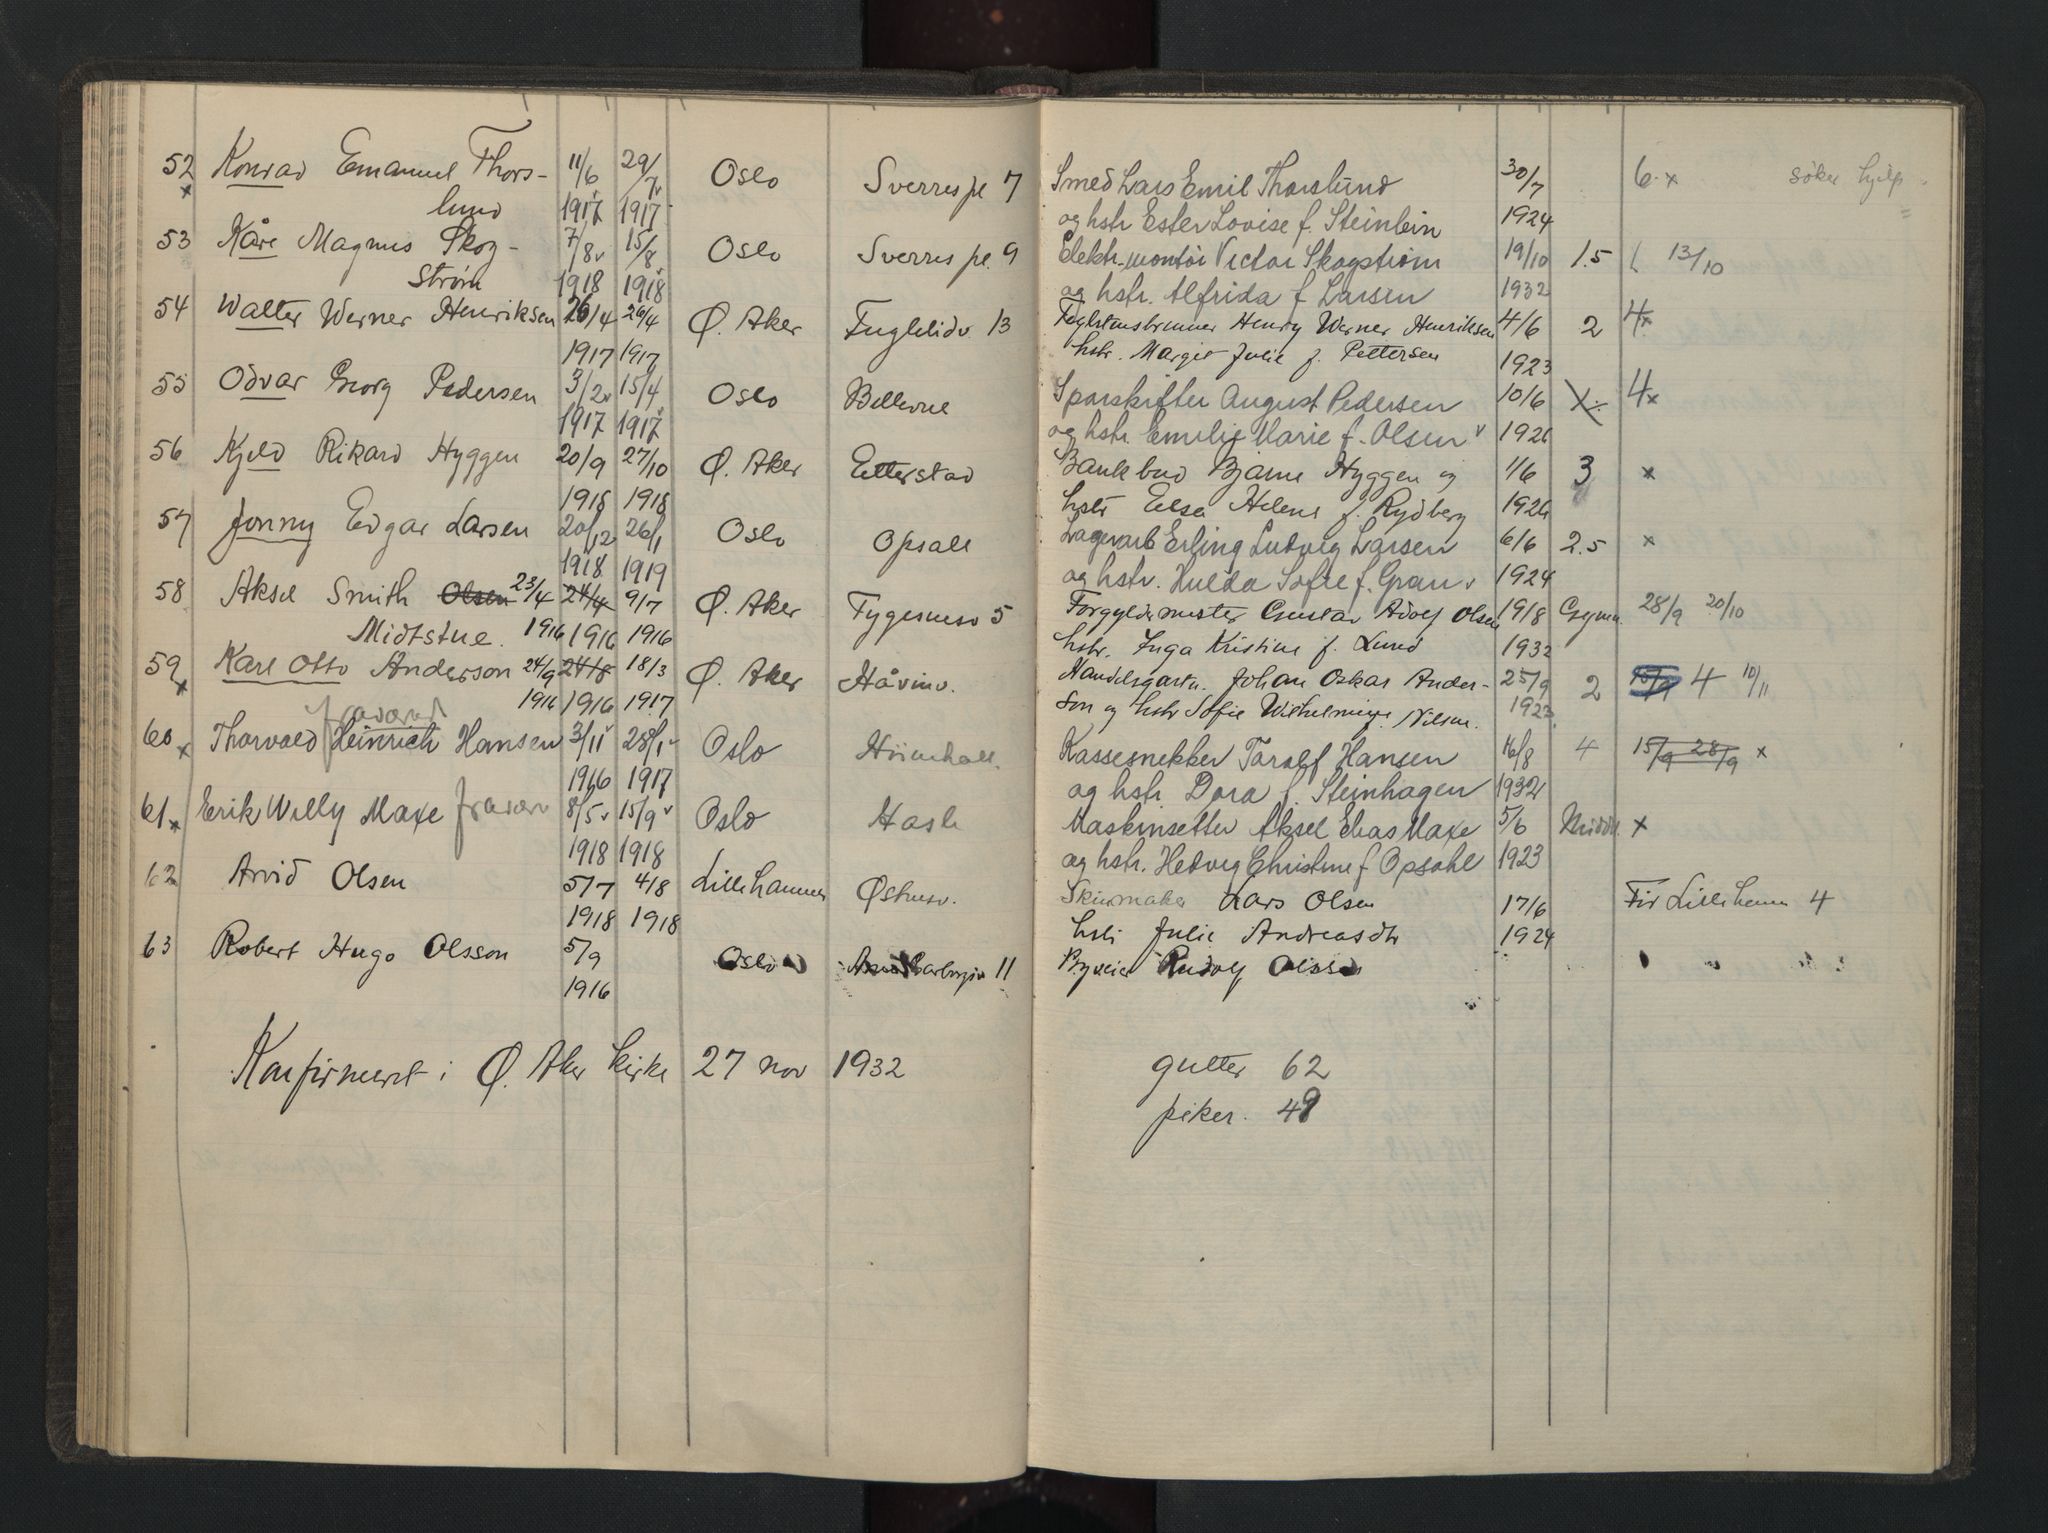 52 Konrad Emanuel Thors- 11/6 29/7 Oslo Sverres pl 7 Smed Lars Emil Thorslund 30/7 6 x söker hjelp
x lund 1917 1917 og hstr Ester Lovise f. Steinlein 1924
53 Kåre Magnus Skog- 7/8 15/8 Oslo Sverres pl. 9 Elektr.montör Victor Skogström 19/10 1.5 13/10
ström 1918 1918 og hstr. Alfrida f Larsen 1932
54 Walter Werner Henriksen 26/4 26/4 Ø. Aker Fuglelidv. 13 Henry Werner Henriksen 4/6 2 4x
1917 1917 hstr. Margit Julie f. Pettersen 1923
55 Odvar Georg Pedersen 3/2 15/4 Oslo Bellevue Sporskifter August Pedersen 10/6 4x
1917 1917 og hstr. Emilie Marie f. Olsen 1926
56 Kjeld Rikard Hyggen 20/9 27/10 Ø. Aker Etterstad Bankbud Bjarne Hyggen og 1/6 3 x
1918 1918 hstr Elsa Helene f. Rydberg 1926
57 Jonny Edgar Larsen 20/12 26/1 Oslo Opsal Lagerarb Erling Ludvig Larsen 6/6 2.5 x
1918 1919 og hstr. Hulda Sofie f. Gran 1924
58 Aksel Smith Olsen 23/4 24/4 9/7 Ø. Aker 5 Forgyldermester Gustav Adolf Olsen 19/8 Gymn. 28/9 20/10
Midtstue. 1916 1916 1916 hstr. Inga Kristine f. Lund 1932
59 Karl Otto Anderson 24/9 24/8 18/3 Ø. Aker Håvinv. Handelsgartn. Johan Oskar Ander- 25/9 2 15/9 4 10/11
x 1916 1916 1917 son og hstr Sofie Wilhelmine f. Nilsen. 1923
fravær
60 x Thorvald Heinrich Hansen 3/11 28/1 Oslo Kassesnekker Taralf Hansen 16/8 4 15/9 28/9 x
1916 1917 og hstr. Dora f. Steinhagen 1932
61 x Erik Willy Maxe fravær 8/5 15/9 Oslo Hasle Maskinsetter Aksel Elias Maxe 5/6 Middel x
1918 1918 og hstr. Hedvig Christine f Opsahl 1923
62 Arvid Olsen 5/7 4/8 Lillehammer Østrev. Lars Olsen 17/6 For Lilleham 4
1918 1918 hstr Julie Andreasdtr 1924
63 Robert Hugo Olsson 5/9 Oslo 11 Rudolf Olsson
1916
Konfirmeret i Ø. Aker kirke 27 nov 1932 gutter 62
piker. 49